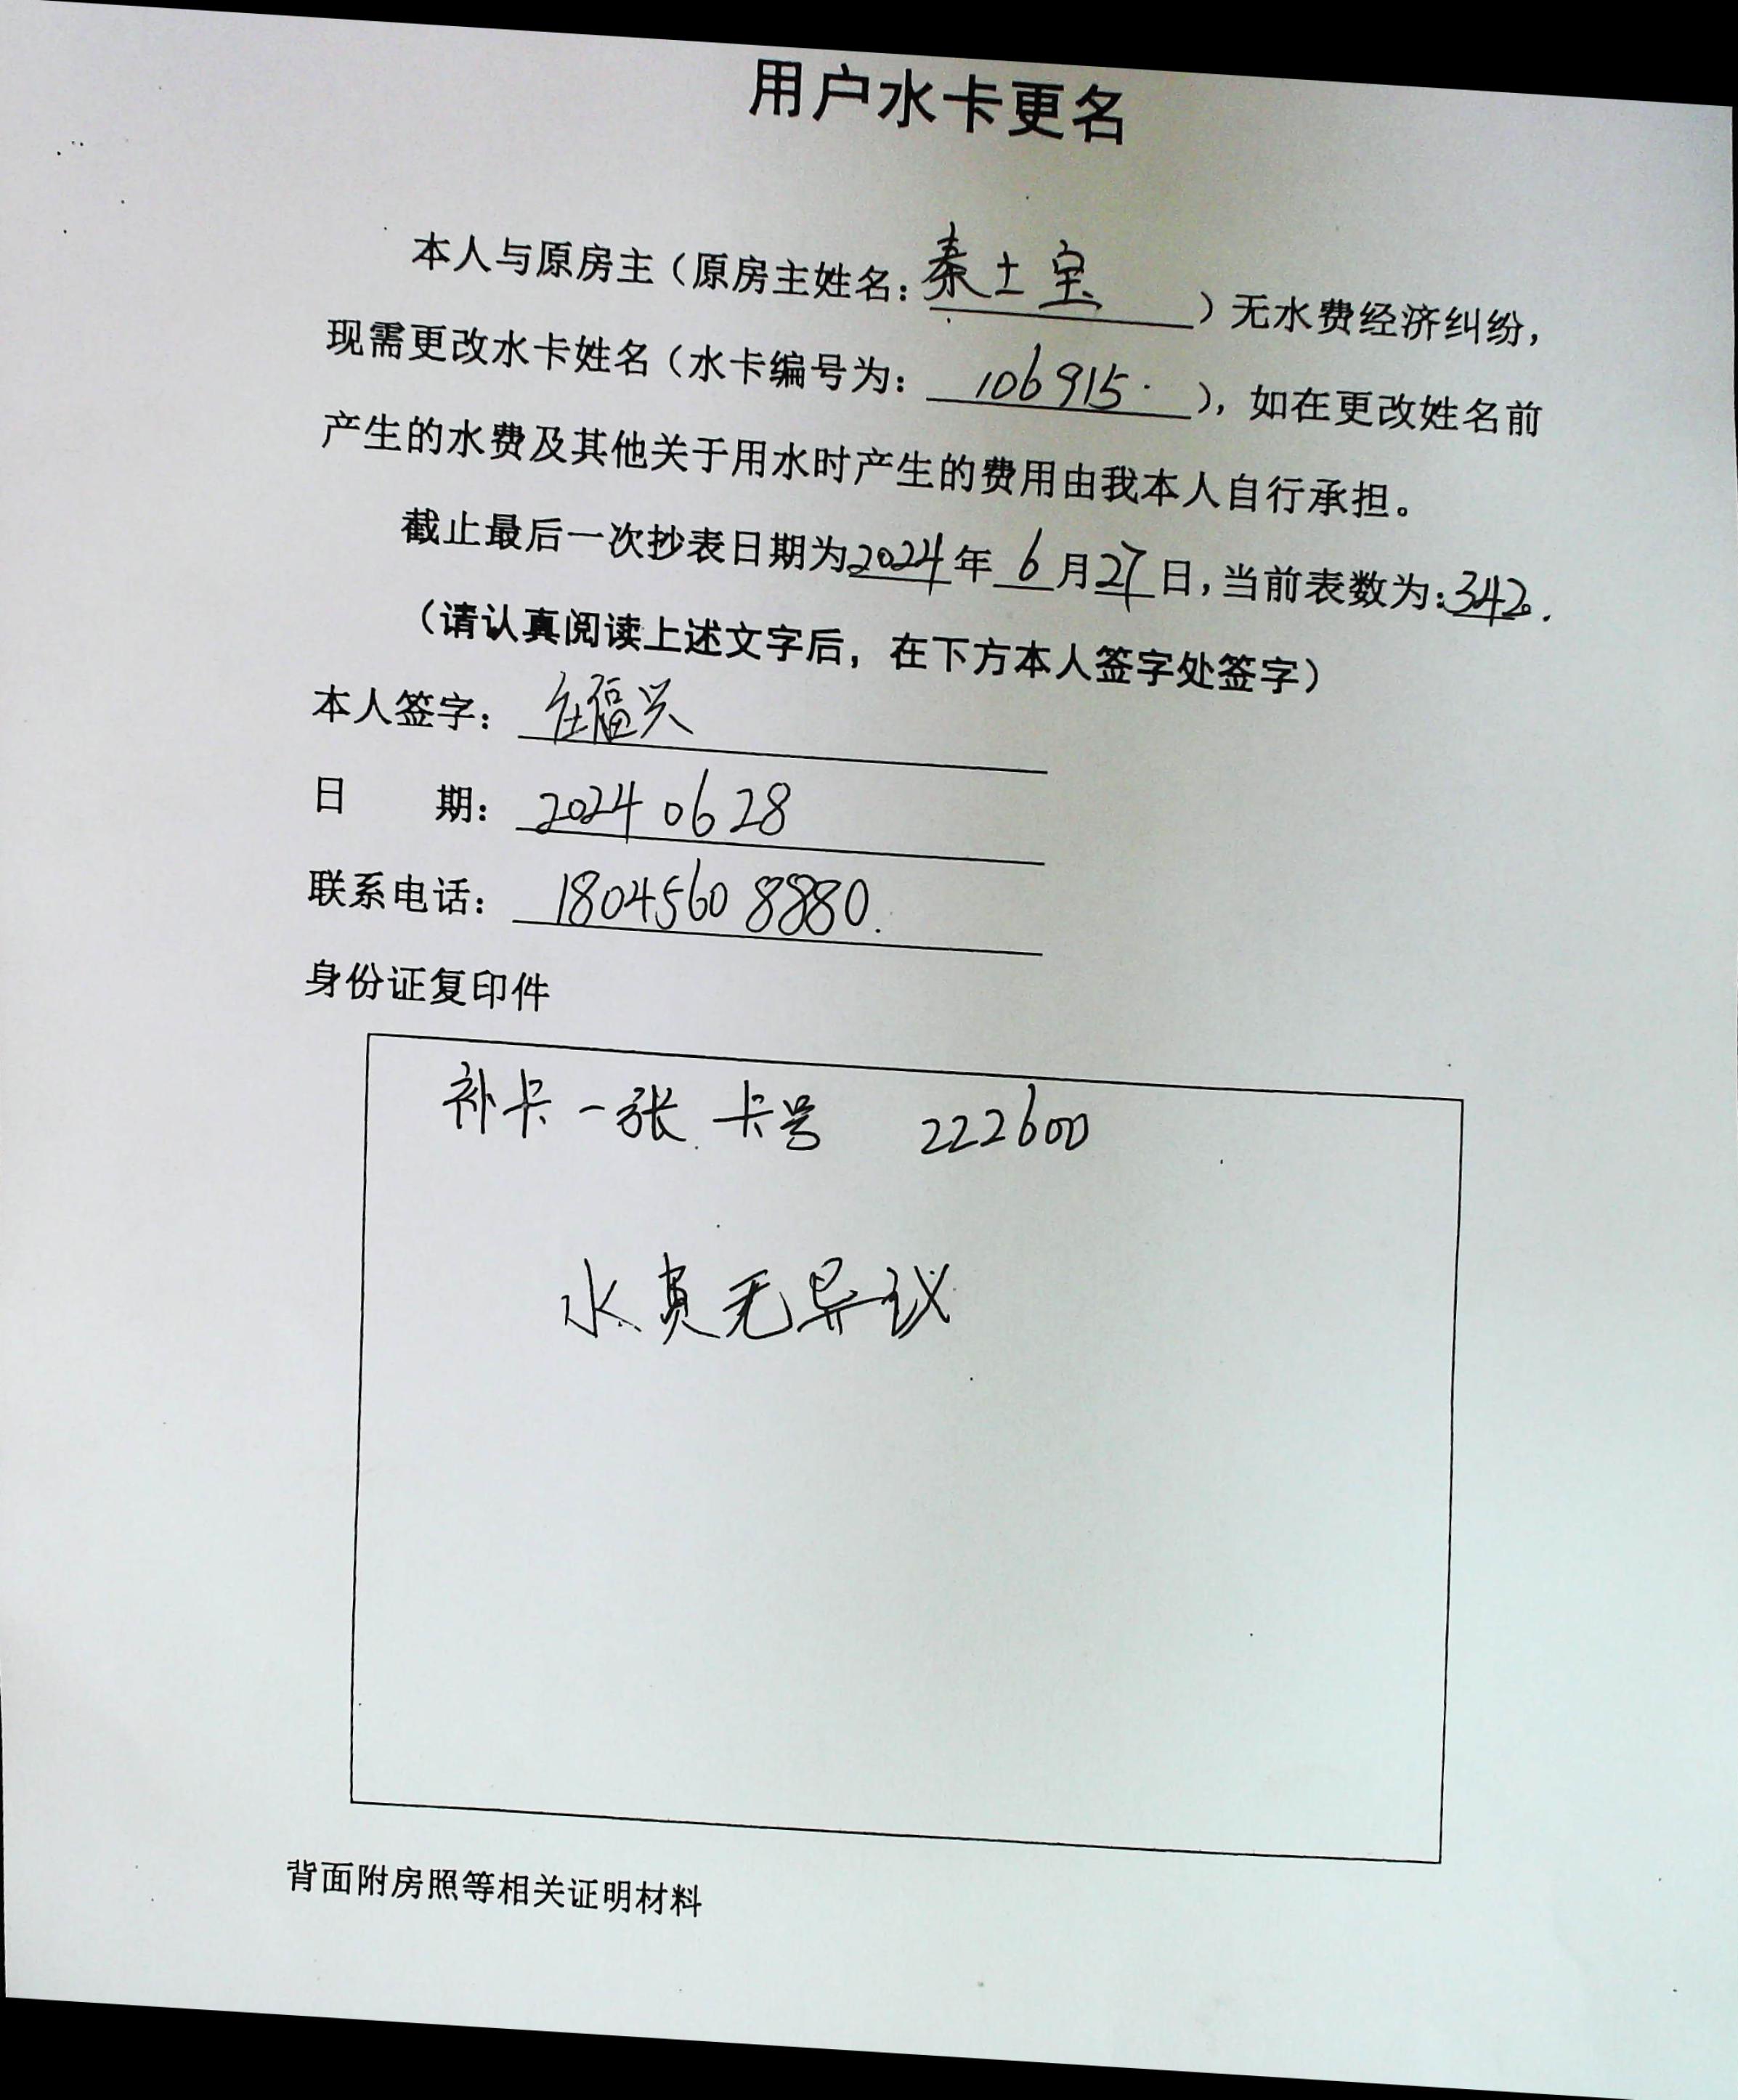 用户水卡更名
本人与原房主（原房主姓名：秦士宝）无水费经济纠纷，
现需更改水卡姓名（水卡编号为：106915.），如在更改姓名前
产生的水费及其他关于用水时产生的费用由我本人自行承担。
截止最后一次抄表日期为2024年6月27日，当前表数为：342。.
（请认真阅读上述文字后，在下方本人签字处签字）
本人签字：福兴
日 期：2024 06 28
联系电话：1804560 8880.
身份证复印件
补卡一张 卡号 222600
水费无异议
背面附房照等相关证明材料